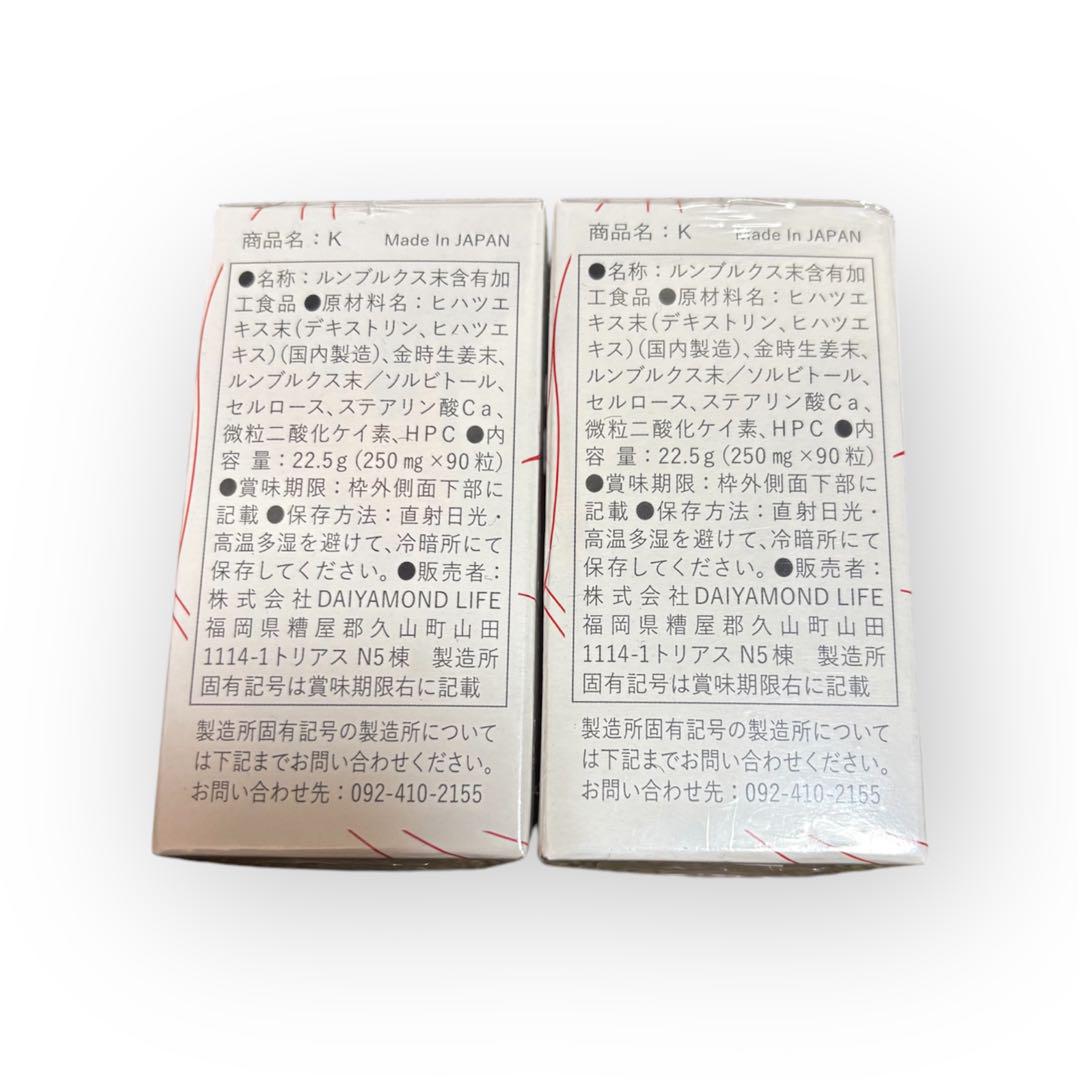 商品名：K　Made In JAPAN
●名称：ルンブルクス末含有加
工食品 ●原材料名：ヒハツエ
キス末（デキストリン、ヒハツエ
キス）（国内製造）、金時生姜末、
ルンブルクス末／ソルビトール、
セルロース、ステアリン酸Ca、
微粒二酸化ケイ素、HPC ●内
容 量：22.5g（250 mg ×90粒）
●賞味期限：枠外側面下部に
記載 ●保存方法：直射日光・
高温多湿を避けて、冷暗所にて
保存してください。●販売者：
株式会社DAIYAMOND LIFE
福岡県糟屋郡久山町山田
1114-1トリアス N5棟　製造所
固有記号は賞味期限右に記載
製造所固有記号の製造所について
は下記までお問い合わせください。
お問い合わせ先：092-410-2155
商品名：K　Made In JAPAN
●名称：ルンブルクス末含有加
工食品 ●原材料名：ヒハツエ
キス末（デキストリン、ヒハツエ
キス）（国内製造）、金時生姜末、
ルンブルクス末／ソルビトール、
セルロース、ステアリン酸Ca、
微粒二酸化ケイ素、HPC ●内
容 量：22.5g（250 mg ×90粒）
●賞味期限：枠外側面下部に
記載 ●保存方法：直射日光・
高温多湿を避けて、冷暗所にて
保存してください。●販売者：
株式会社DAIYAMOND LIFE
福岡県糟屋郡久山町山田
1114-1トリアス N5棟　製造所
固有記号は賞味期限右に記載
製造所固有記号の製造所について
は下記までお問い合わせください。
お問い合わせ先：092-410-2155